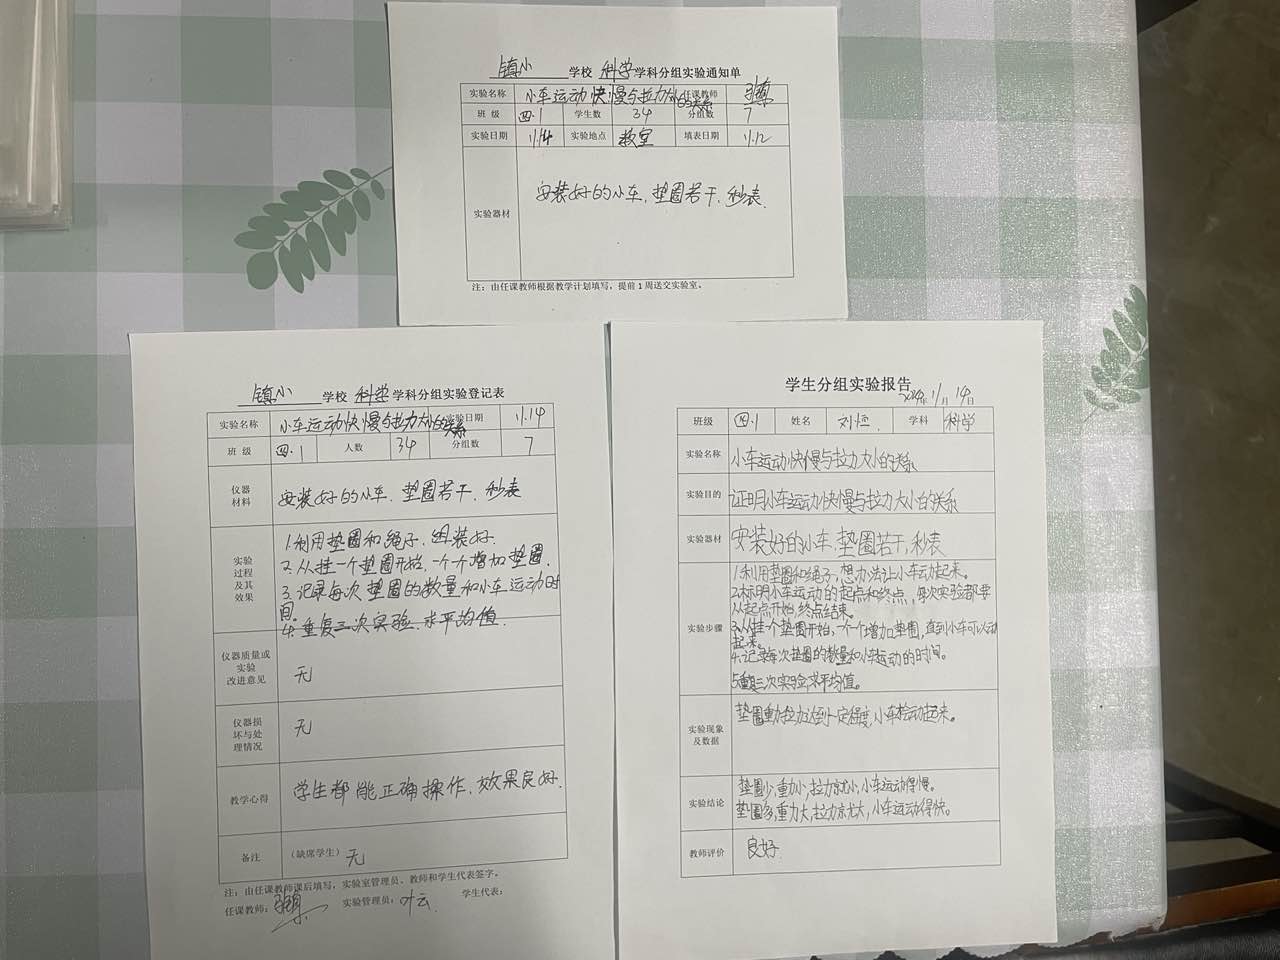 镇小 学校 科学 学科分组实验通知单
实验名称 小车运动快慢与拉力大小的关系 任课教师
班 级 四.1 学生数 34 分组数 7
实验日期 11.14 实验地点 教室 填表日期 11.12
实验器材 安装好的小车、垫圈若干、秒表.
注：由任课教师根据教学计划填写，提前 1 周送交实验室。
镇小 学校 科学 学科分组实验登记表
实验名称 小车运动快慢与拉力大小的关系 实验日期 11.14
班 级 四.1 人数 34 分组数 7
仪器材料 安装好的小车、垫圈若干、秒表
实验过程及其效果 1.利用垫圈和绳子、组装好.
2.从挂一个垫圈开始,一个个增加垫圈.
3.记录每次垫圈的数量和小车运动时
间.
4.重复三次实验、求平均值.
仪器质量或实验改进意见 无
仪器损坏与处理情况 无
教学心得 学生都能正确操作、效果良好.
备注 （缺席学生）无
注：由任课教师课后填写，实验室管理员、教师和学生代表签字。
任课教师： 实验管理员：叶云 学生代表：
学生分组实验报告
2024年11月14日
班级 四.1 姓名 刘恒. 学科 科学
实验名称 小车运动快慢与拉力大小的关系
实验目的 证明小车运动快慢与拉力大小的关系
实验器材 安装好的小车,垫圈若干,秒表
实验步骤 1.利用垫圈和绳子,想办法让小车动起来。
2.标明小车运动的起点和终点,每次实验都要
从起点开始,终点结束。
3.从挂一个垫圈开始,一个个增加垫圈,直到小车可以动
起来。
4.记录每次垫圈的数量和小车运动的时间。
5.重复三次实验,求平均值。
实验现象及数据 垫圈重力拉力达到一定程度,小车松动起来。
实验结论 垫圈少,重力小,拉力就小,小车运动得慢。
垫圈多,重力大,拉力就大,小车运动得快。
教师评价 良好.